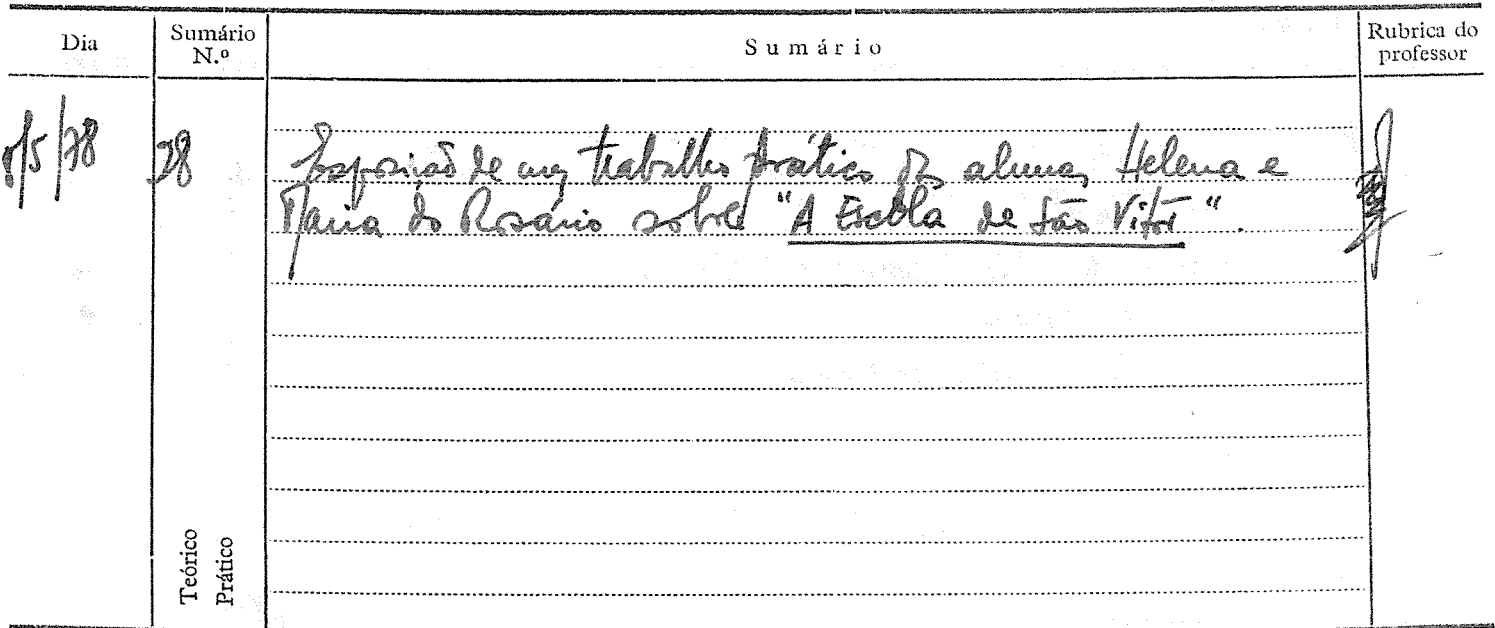 Dia
Sumário N.º
Sumário
Rubrica do professor
8/5/78
28
Exposição de um trabalho prático das alunas Helena e
Maria do Rosário sobre "A Escola de São Vítor".
Teórico
Prático